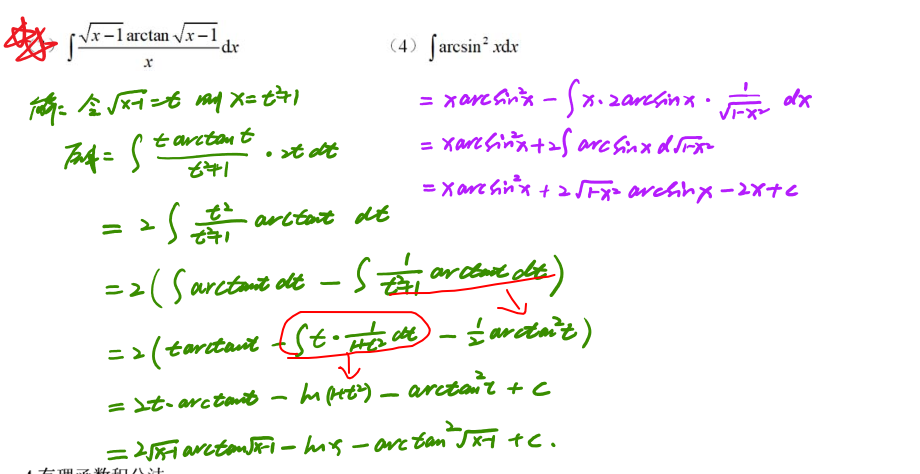 ) ∫ √(x−1) arctan √(x−1) / x dx
解: 令 √(x-1) = t 则 x = t²+1
原式 = ∫ t arctan t / (t²+1) · 2t dt
= 2 ∫ t²/(t²+1) arctant dt
= 2 ( ∫ arctant dt − ∫ 1/(t²+1) arctant dt )
= 2 ( t arctant − ∫ t · 1/(1+t²) dt − 1/2 arctan²t )
= 2t · arctant − ln(1+t²) − arctan²t + c
= 2√(x-1) arctan√(x-1) − lnx − arctan²√(x-1) + c.
(4) ∫ arcsin² xdx
= x arcsin²x − ∫ x · 2arcsinx · 1/√(1-x²) dx
= x arcsin²x + 2∫ arcsinx d√(1-x²)
= x arcsin²x + 2√(1-x²) arcsinx − 2x + c